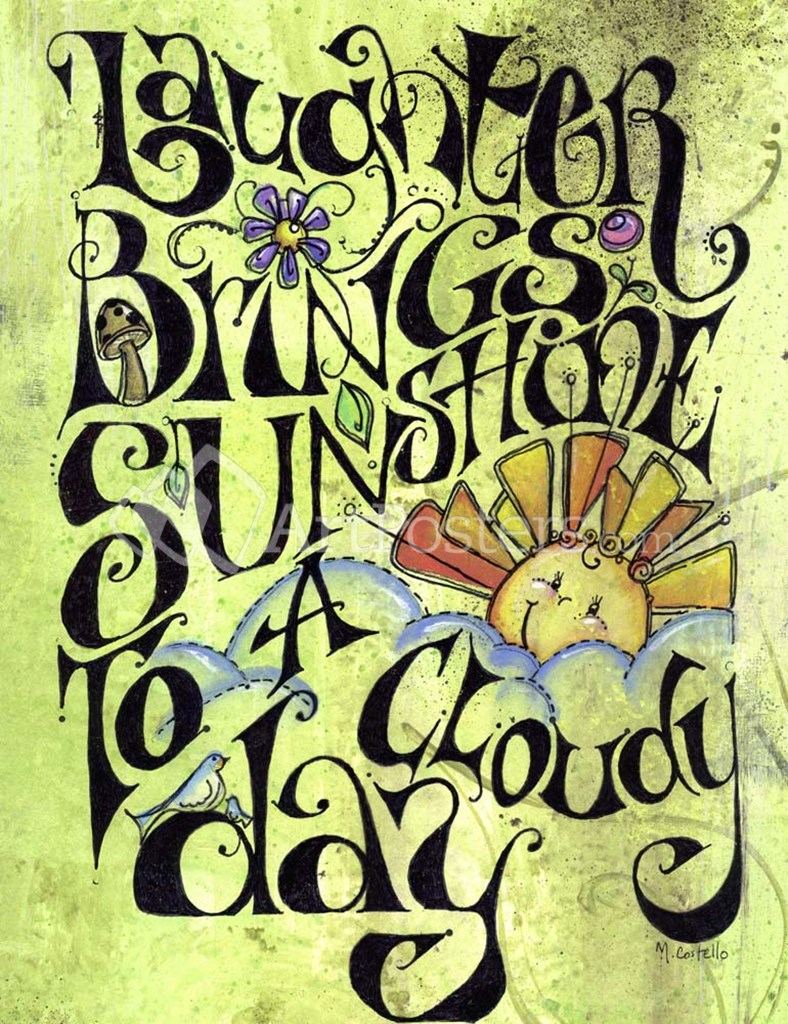 LaughtER
BriNGS
SUNSHiNE
To A CLoudy
day
ArtPosters.com
M. Costello